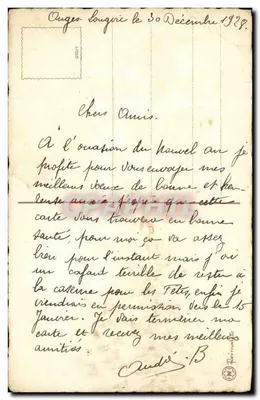 Ouges Longvic le 30 Décembre 1928.
Chers Amis.
A l'occasion du Nouvel an je
profite pour vous envoyer mes
meilleurs voeux de bonne et heu
reuse année j'espère que cette
carte vous trouvera en bonne
santé, pour moi ça va assez
bien pour l'instant mais j'ai
un cafard terrible de rester à
la caserne pour les fêtes, enfin je
viendrais en permission vers le 15
Janvier. Je vais terminer ma
carte et recevez mes meilleurs
amitiés.
André. B